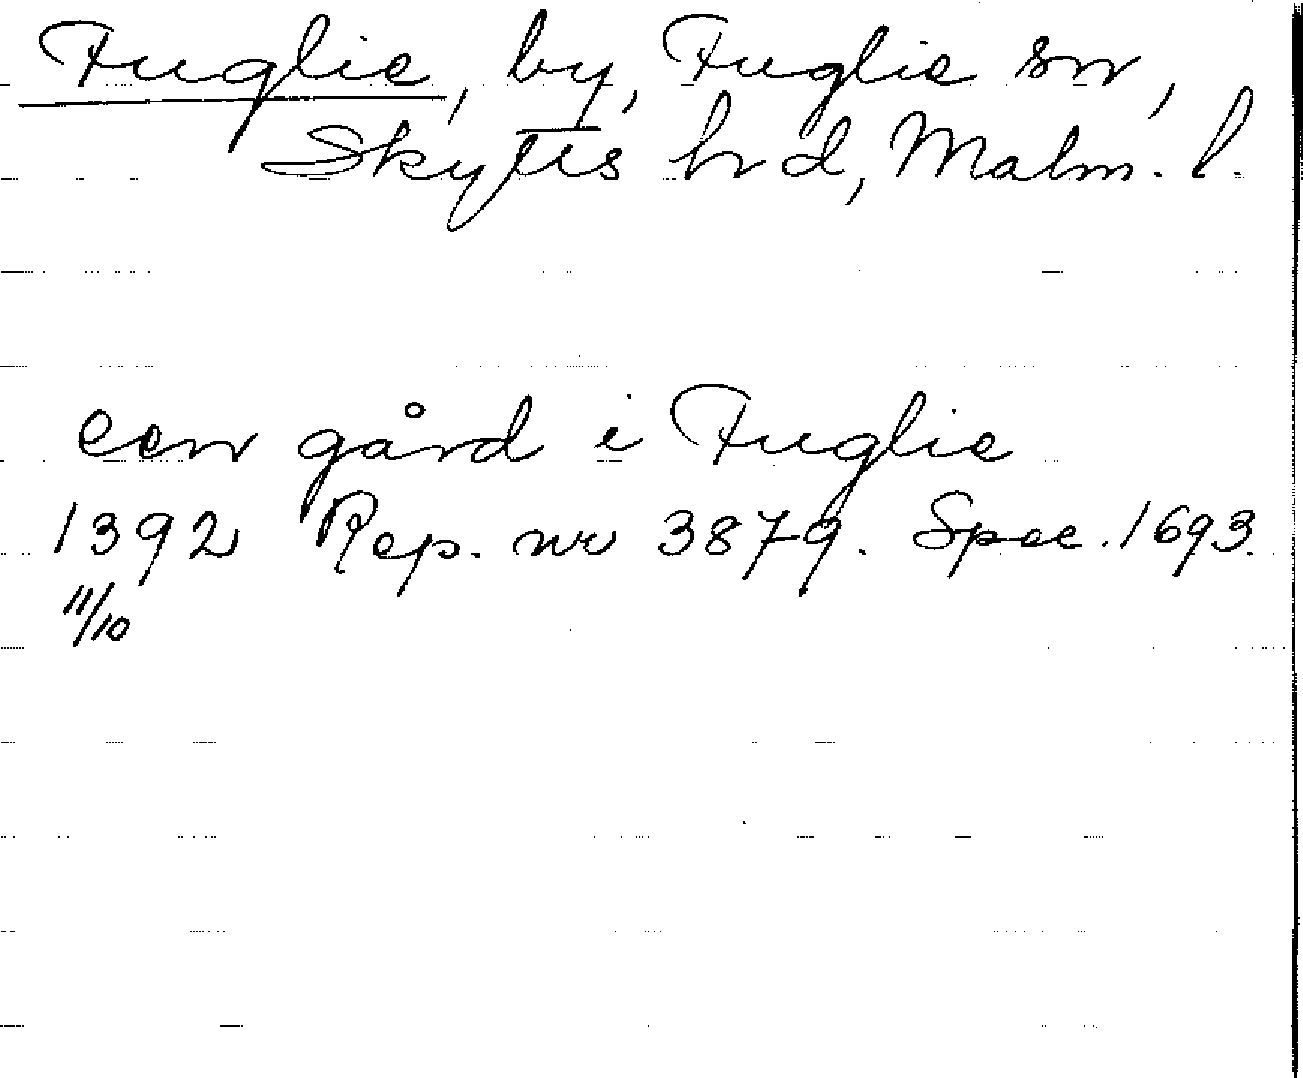 Fuglie, by, Fuglie sn,
Skytts hrd, Malm. l.
een gård i Fuglie
1392 Rep. nr 3879. Spec. 1693.
11/10